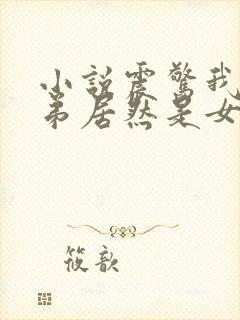 小说震惊我
弟居然是女
筱歆